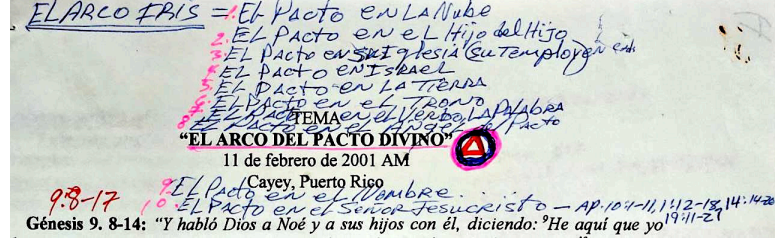 EL ARCO IRIS = 1. El Pacto en La Nube
2. EL PActo en eL Hijo del Hijo
3. EL PActo en su Iglesia (su Templo) en
4. EL PActo en ISRAEL
5. EL PActo en LA TIERRA
6. EL PActo en el TRONO
7. EL PActo en el Verbo, LA PALABRA
8. EL PActo en el Angel del Pacto
TEMA
“EL ARCO DEL PACTO DIVINO”
11 de febrero de 2001 AM
Cayey, Puerto Rico
9. EL PActo en el Nombre...
9:8-17
10. EL PActo en el Señor Jesucristo – AP. 10:1-11, 1:12-18, 14:14-20
19:11-21
Génesis 9. 8-14: “Y habló Dios a Noé y a sus hijos con él, diciendo: ⁹He aquí que yo